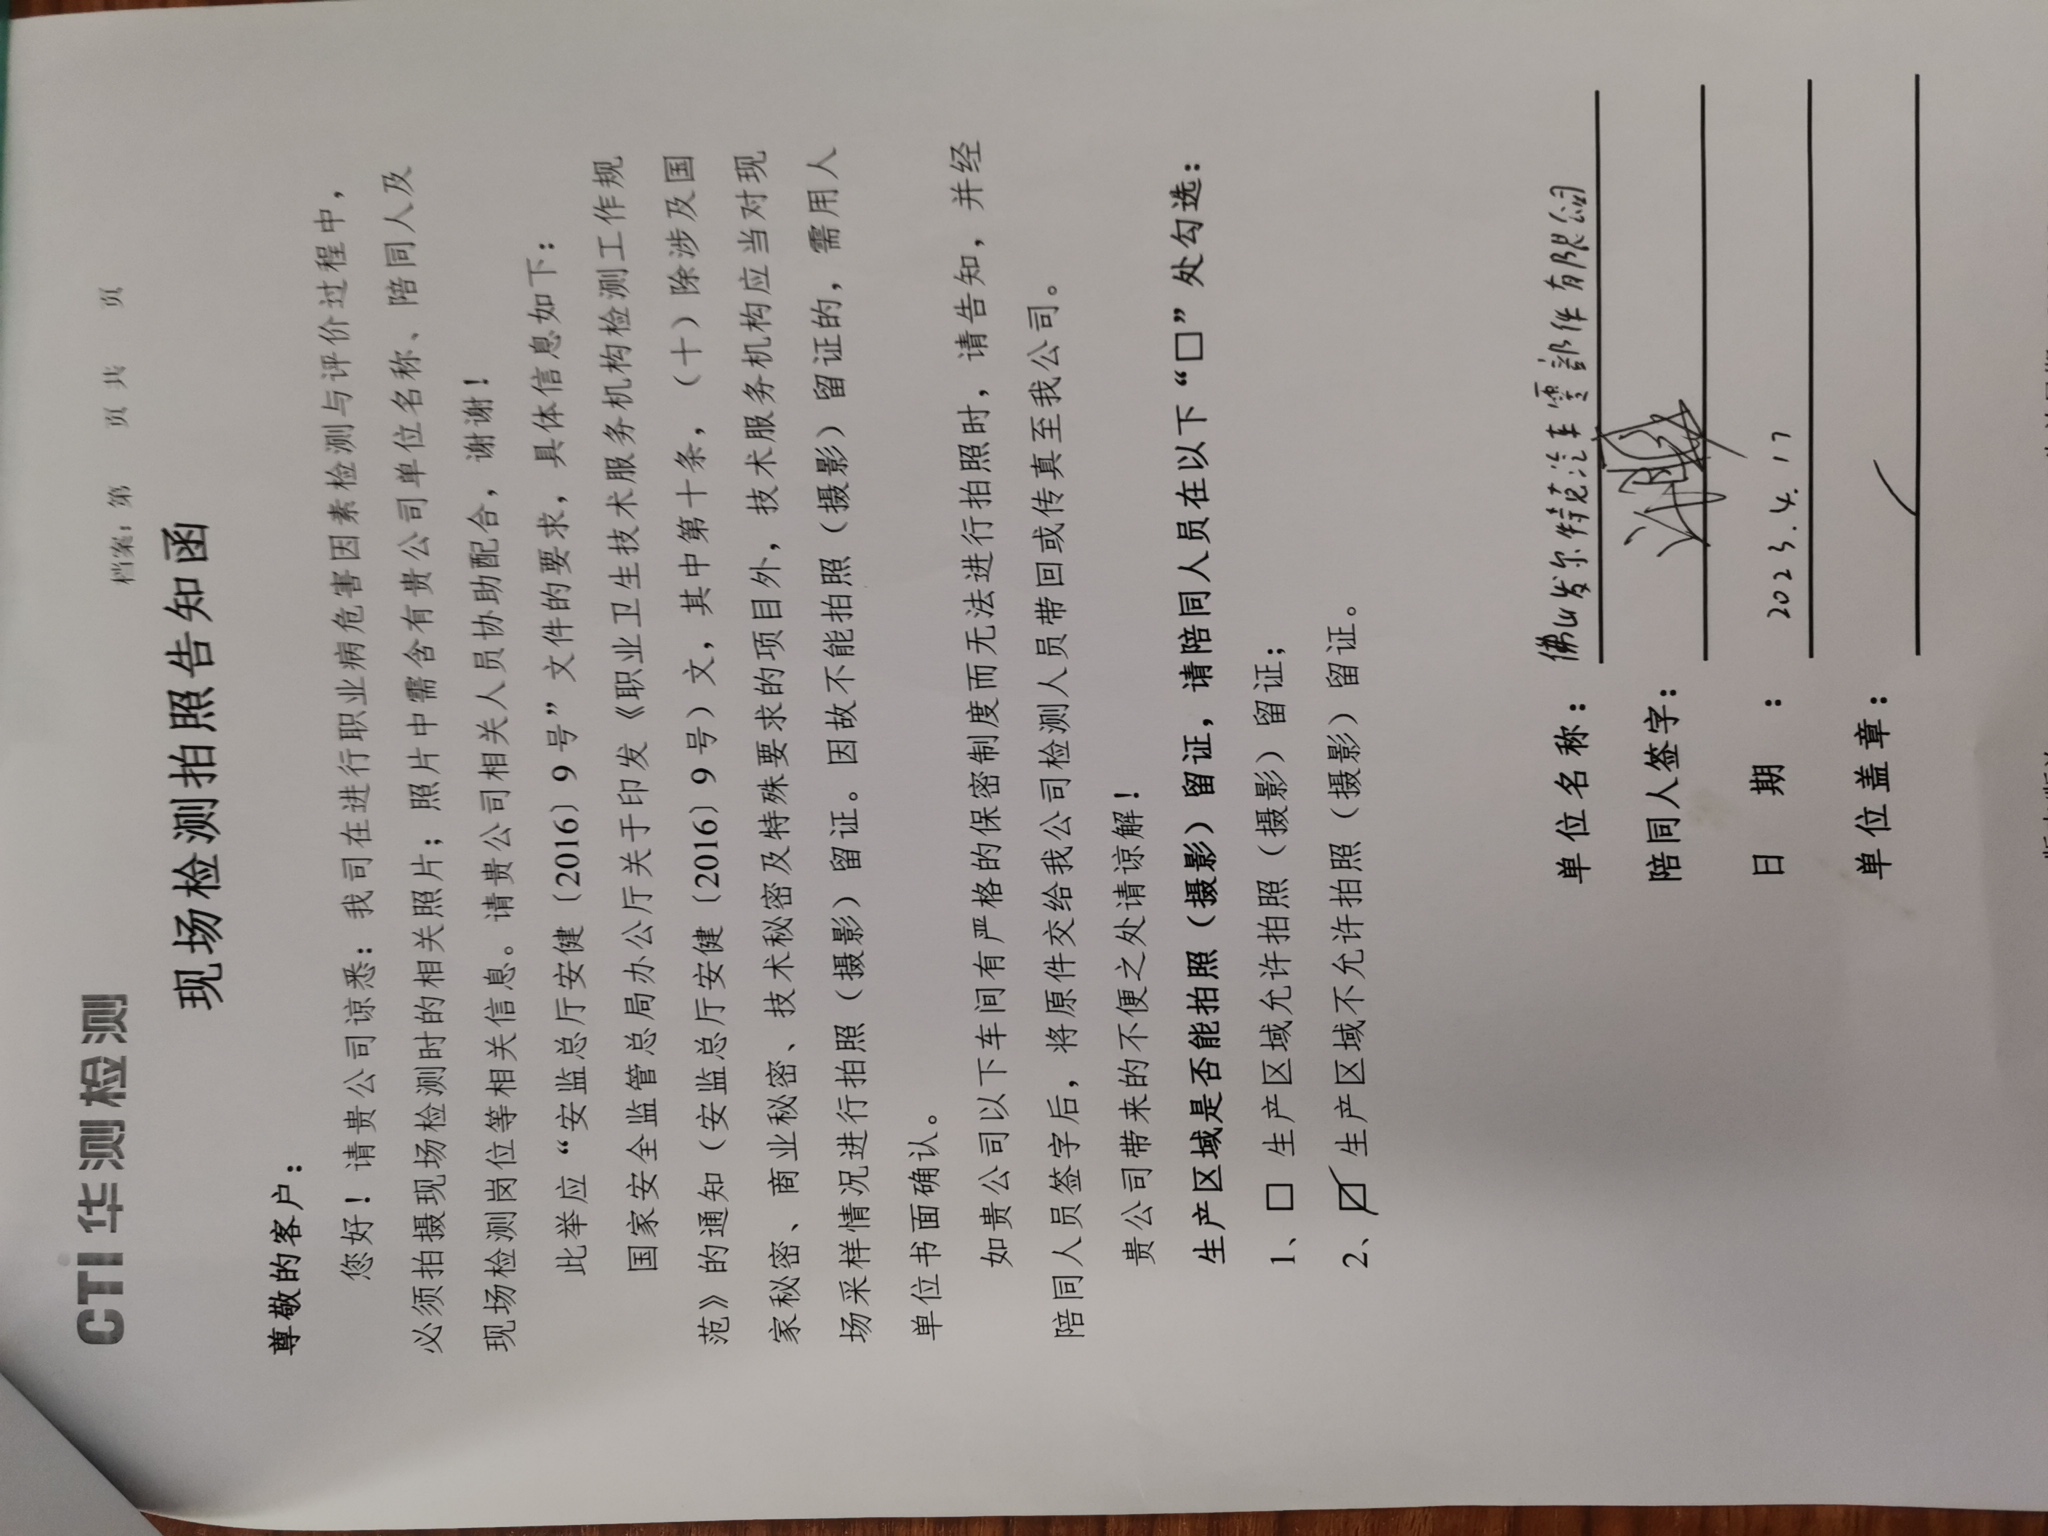 CTI 华测检测
档案：第 页 共 页
现场检测拍照告知函
尊敬的客户：
您好！请贵公司谅悉：我司在进行职业病危害因素检测与评价过程中，
必须拍摄现场检测时的相关照片；照片中需含有贵公司单位名称、陪同人及
现场检测岗位等相关信息。请贵公司相关人员协助配合，谢谢！
此举应“安监总厅安健〔2016〕9号”文件的要求，具体信息如下：
国家安全监管总局办公厅关于印发《职业卫生技术服务机构检测工作规
范》的通知（安监总厅安健〔2016〕9号）文，其中第十条，（十）除涉及国
家秘密、商业秘密、技术秘密及特殊要求的项目外，技术服务机构应当对现
场采样情况进行拍照（摄影）留证。因故不能拍照（摄影）留证的，需用人
单位书面确认。
如贵公司以下车间有严格的保密制度而无法进行拍照时，请告知，并经
陪同人员签字后，将原件交给我公司检测人员带回或传真至我公司。
贵公司带来的不便之处请谅解！
生产区域是否能拍照（摄影）留证，请陪同人员在以下“□”处勾选：
1、□ 生产区域允许拍照（摄影）留证；
2、☑ 生产区域不允许拍照（摄影）留证。
单位名称：佛山发尔特克汽车零部件有限公司
陪同人签字：
日 期：2023.4.17
单位盖章：